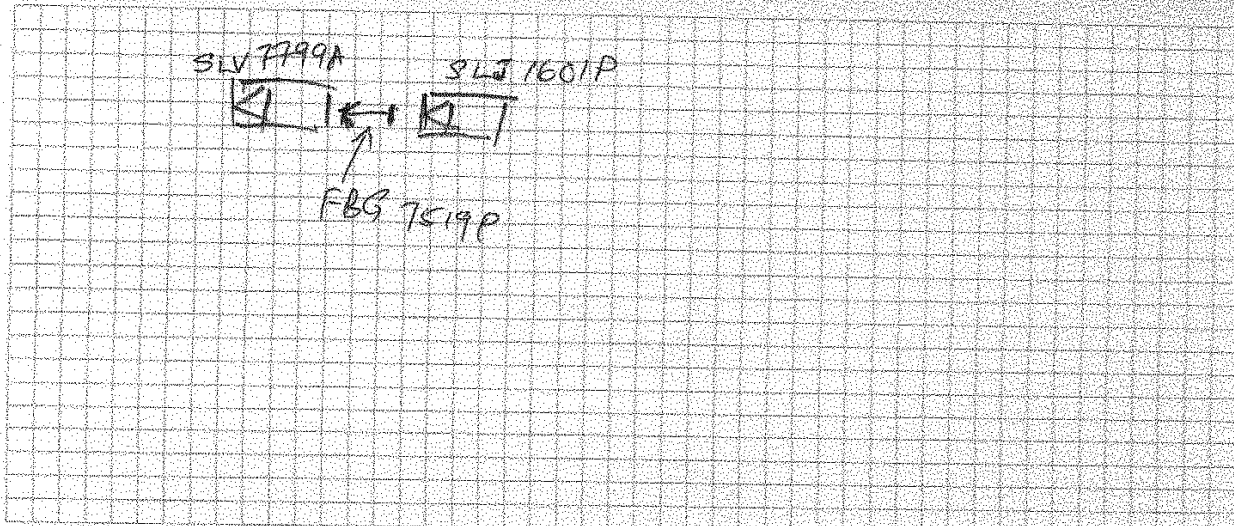 SLV 7799A
SLJ 1601P
FBG 7519P